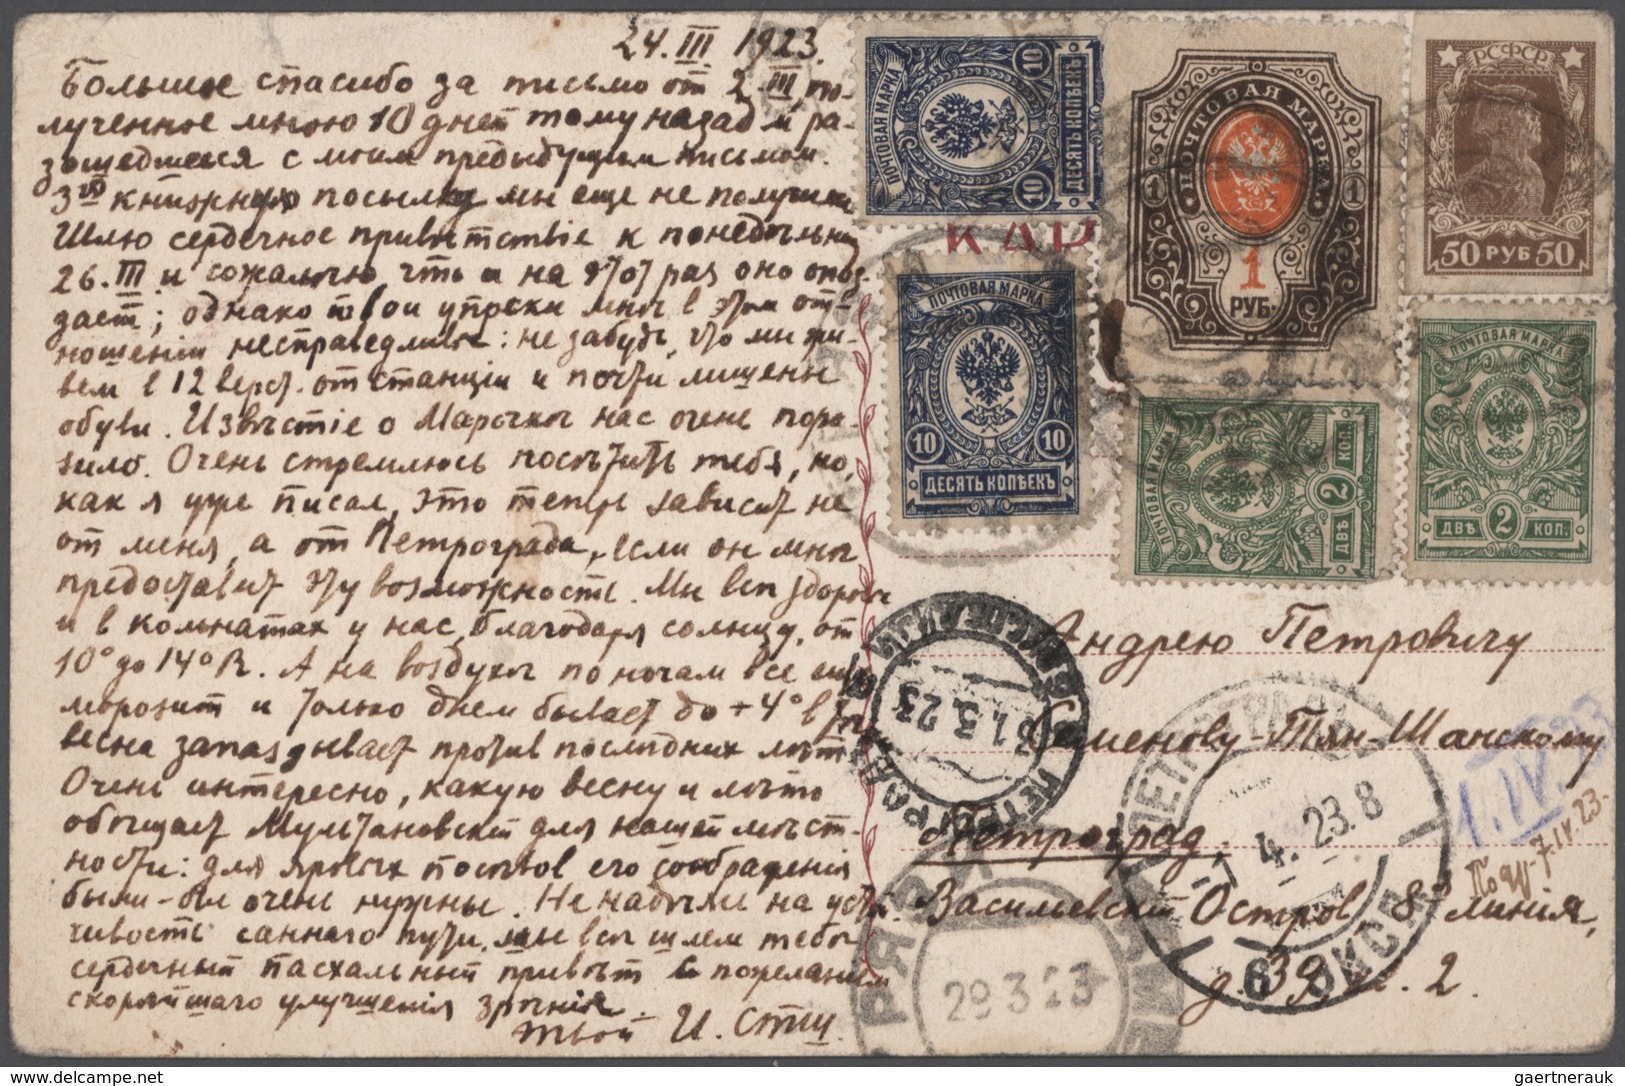 24.III.1923.
Большое спасибо за письмо от 2.III, по-
лученное мною 10 дней тому назад и ра-
зошедшееся с моим предыдущим письмом.
3ю книжную посылку мы еще не получили
Шлю сердечное привѣтствіе к понедѣльнику
26.III и сожалѣю что и на этот раз оно опоз-
дает; однако твои упреки мнѣ в этом от-
ношеніи несправедливы: не забудь, что мы жи-
вем в 12 верст. от станціи и почти лишены
обуви. Извѣстіе о Марочкѣ нас очень пора-
зило. Очень стремлюсь посѣтить тебя, но,
как я уже писал, это теперь зависит не
от меня, а от Петрограда, если он мнѣ
предоставит эту возможность. Мы всѣ здоровы
и в комнатах у нас, благодаря солнцу, от
10° до 14°R. А на воздухѣ по ночам все еще
морозит и только днем бывает до +4° в тѣни
весна запаздывает против послѣдних лѣт
Очень интересно, какую весну и лѣто
обѣщает Мультановскій для нашей мѣст-
ности: для яровых посѣвов его соображенія
были-бы очень нужны. Не надѣясь на устой-
чивость саннаго пути, мы всѣ шлем тебѣ
сердечный пасхальный привѣт с пожеланіем
скорѣйшаго улучшенія зрѣнія.
Твой И. СТШ
ПОЧТОВАЯ МАРКА
10 10
ДЕСЯТЬ КОПѢЕКЪ
ПОЧТОВАЯ МАРКА
1 1
1
РУБ.
РСФСР
50 РУБ 50
КАР
ПОЧТОВАЯ МАРКА
10 10
ДЕСЯТЬ КОПѢЕКЪ
ПОЧТОВАЯ МАРКА
ДВѢ 2 КОП.
ПОЧТОВАЯ МАРКА
ДВѢ 2 КОП.
Андрею Петровичу
Семенову-Тян-Шанскому
Петроград.
Васильевскій Остров 8я линія,
д. 39, кв. 2.
1.IV.23
7.IV.23.
ПЕТРОГРАД
ЭКСПЕДИЦИЯ
31.3.23
ПЕТРОГРАД
-1.4.23.8
29.3.23
gaertnerauk / gaertnerauk.com